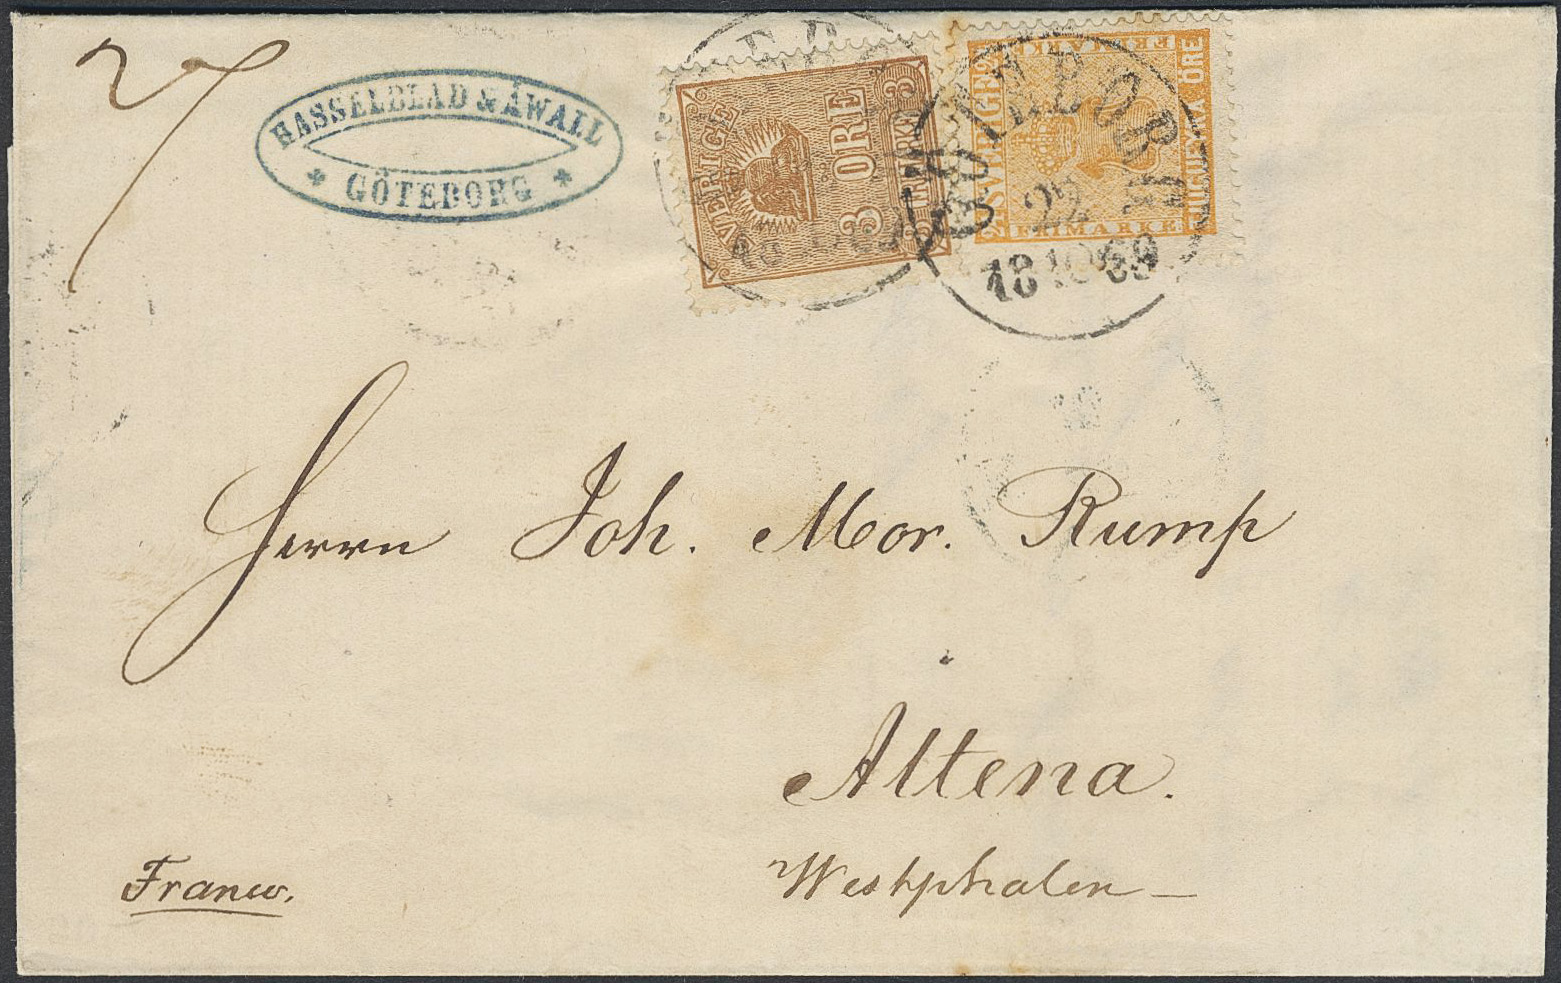 27
HASSELBLAD & ÅWALL
GÖTEBORG
SVERIGE
3 ÖRE
FRIMÄRKE
3
3
SVERIGE
FRIMÄRKE
FRIMÄRKE
ÖRE
24
GÖTEBORG
22
10
1869
Herrn Joh. Mor. Rump
Altena.
Westphalen –
Franco.